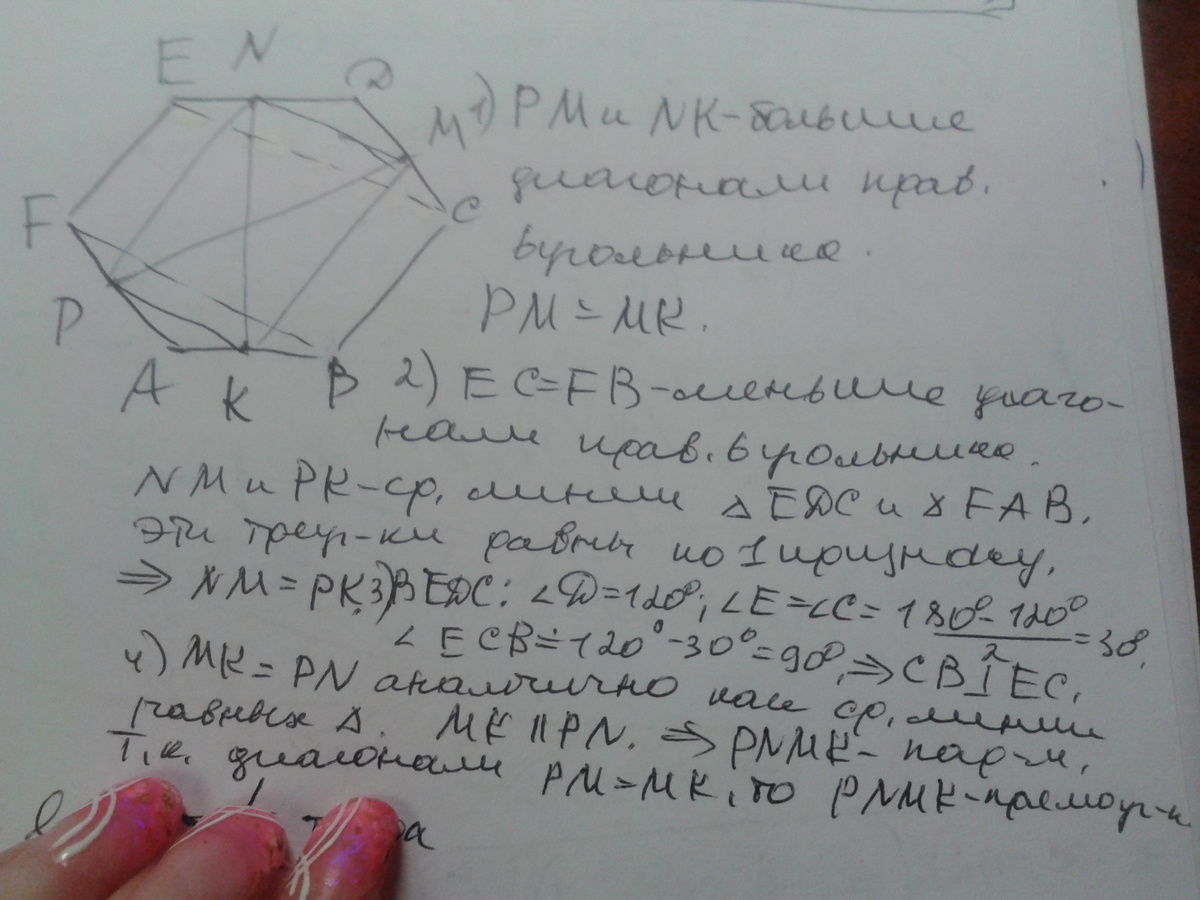 E N D
M
F
C
P
A K B
1) PM и NK-большие
диагонали прав.
6угольника.
PM = MK.
2) EC=FB-меньшие диаго-
нали прав. 6угольника.
NM и PK-ср. линии △EDC и △FAB.
Эти треуг-ки равны по 1 признаку,
⇒ NM = PK. 3) В EDC: ∠D=120°; ∠E=∠C= (180°-120°)/2 =30°.
∠ECB=120°-30°=90°, ⇒ CB⊥EC.
4) MK = PN аналогично как ср. линии
равных △. MK || PN. ⇒ PNMK- пар-м,
Т.к. диагонали PM=MK, то PNMK-прямоуг-к